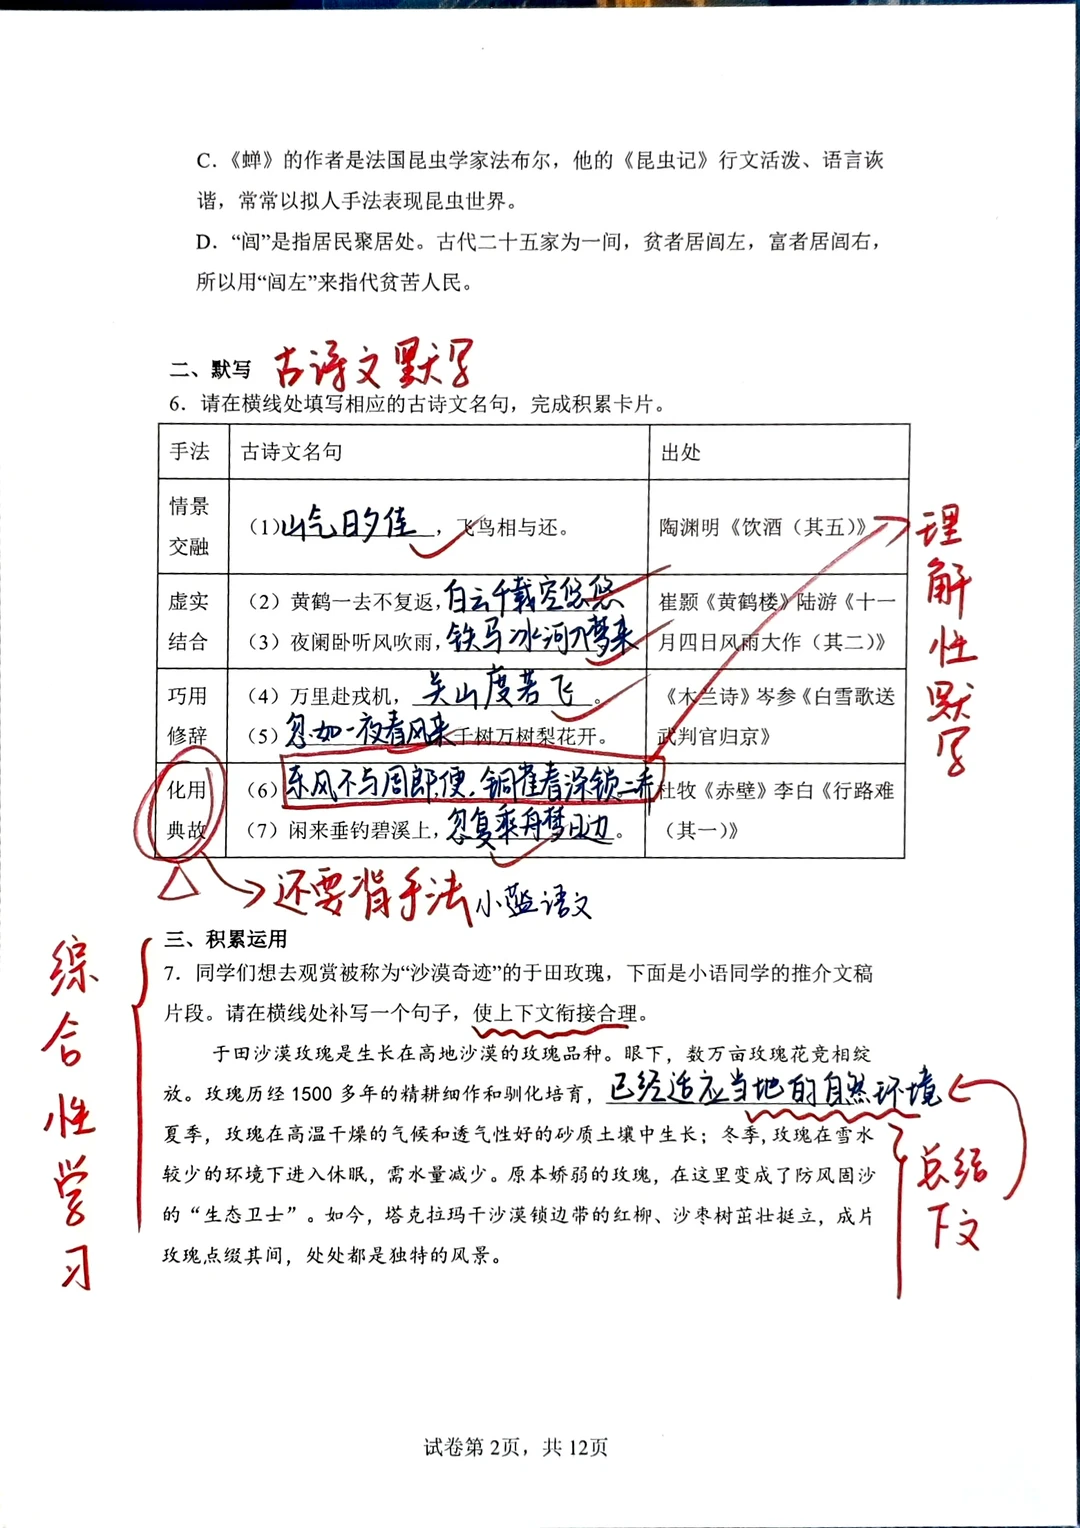 C.《蝉》的作者是法国昆虫学家法布尔，他的《昆虫记》行文活泼、语言诙
谐，常常以拟人手法表现昆虫世界。
D．“闾”是指居民聚居处。古代二十五家为一闾，贫者居闾左，富者居闾右，
所以用“闾左”来指代贫苦人民。
二、默写 古诗文默写
6．请在横线处填写相应的古诗文名句，完成积累卡片。
手法 古诗文名句 出处
情景
交融
（1）山气日夕佳，飞鸟相与还。
陶渊明《饮酒（其五）》
理解性默写
虚实
结合
（2）黄鹤一去不复返，白云千载空悠悠
（3）夜阑卧听风吹雨，铁马冰河入梦来
崔颢《黄鹤楼》陆游《十一
月四日风雨大作（其二）》
巧用
修辞
（4）万里赴戎机，关山度若飞。
（5）忽如一夜春风来千树万树梨花开。
《木兰诗》岑参《白雪歌送
武判官归京》
化用
典故
（6）东风不与周郎便，铜雀春深锁二乔
（7）闲来垂钓碧溪上，忽复乘舟梦日边。
杜牧《赤壁》李白《行路难
（其一）》
还要背手法 小蓝语文
综合性学习
三、积累运用
7．同学们想去观赏被称为“沙漠奇迹”的于田玫瑰，下面是小语同学的推介文稿
片段。请在横线处补写一个句子，使上下文衔接合理。
于田沙漠玫瑰是生长在高地沙漠的玫瑰品种。眼下，数万亩玫瑰花竞相绽
放。玫瑰历经 1500 多年的精耕细作和驯化培育，已经适应当地的自然环境
夏季，玫瑰在高温干燥的气候和透气性好的砂质土壤中生长；冬季，玫瑰在雪水
较少的环境下进入休眠，需水量减少。原本娇弱的玫瑰，在这里变成了防风固沙
的“生态卫士”。如今，塔克拉玛干沙漠锁边带的红柳、沙枣树茁壮挺立，成片
玫瑰点缀其间，处处都是独特的风景。
总结
下文
试卷第 2页，共 12页